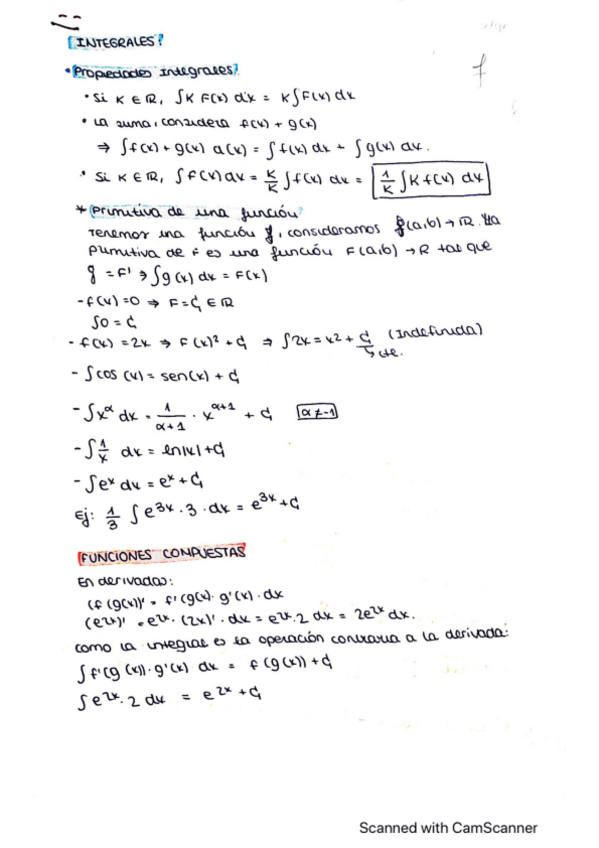 INTEGRALES:
• Propiedades integrales:
• Si K ∈ ℝ, ∫K F(x) dx = K∫F(x) dx
• La suma, considera f(x) + g(x)
⇒ ∫f(x) + g(x) d(x) = ∫f(x) dx + ∫g(x) dx.
• Si K ∈ ℝ, ∫F(x) dx = K/K ∫f(x) dx = 1/K ∫K f(x) dx
* Primitiva de una función
Tenemos una función f, consideramos f(a,b) → ℝ. Una
primitiva de f es una función F(a,b) → ℝ tal que
g = F' ⇒ ∫g(x) dx = F(x)
- f(x) = 0 ⇒ F = C ∈ ℝ
∫0 = C
- f(x) = 2x ⇒ F(x)² + C ⇒ ∫2x = x² + C (Indefinida)
↳ cte.
- ∫cos(x) = sen(x) + C
- ∫x^α dx = 1/(α+1) · x^(α+1) + C α ≠ -1
- ∫1/x dx = ln|x| + C
- ∫e^x dx = e^x + C
Ej: 1/3 ∫e^(3x) · 3 · dx = e^(3x) + C
FUNCIONES COMPUESTAS
En derivadas:
(f(g(x))' = f'(g(x) · g'(x) · dx
(e^(2x))' = e^(2x) · (2x)' · dx = e^(2x) · 2 dx = 2e^(2x) dx.
como la integral es la operación contraria a la derivada:
∫f'(g(x)) · g'(x) dx = f(g(x)) + C
∫e^(2x) · 2 dx = e^(2x) + C
Scanned with CamScanner